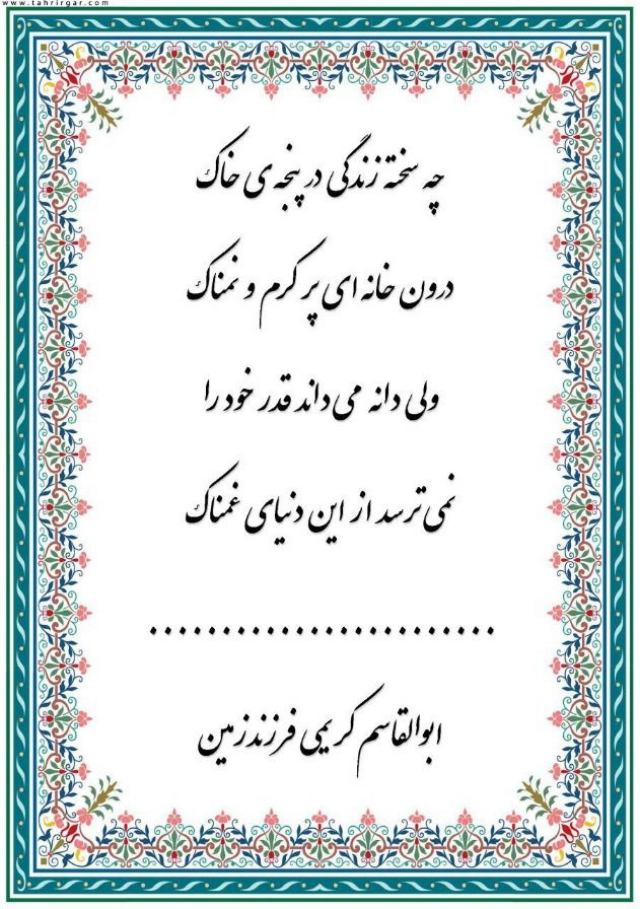 www.tahrirgar.com
چه سخته زندگی در پنجه ی خاک
درون خانه ای پر کرم و نمناک
ولی دانه می داند قدر خود را
نمی ترسد از این دنیای غمناک
........................
ابوالقاسم کریمی فرزندزمین